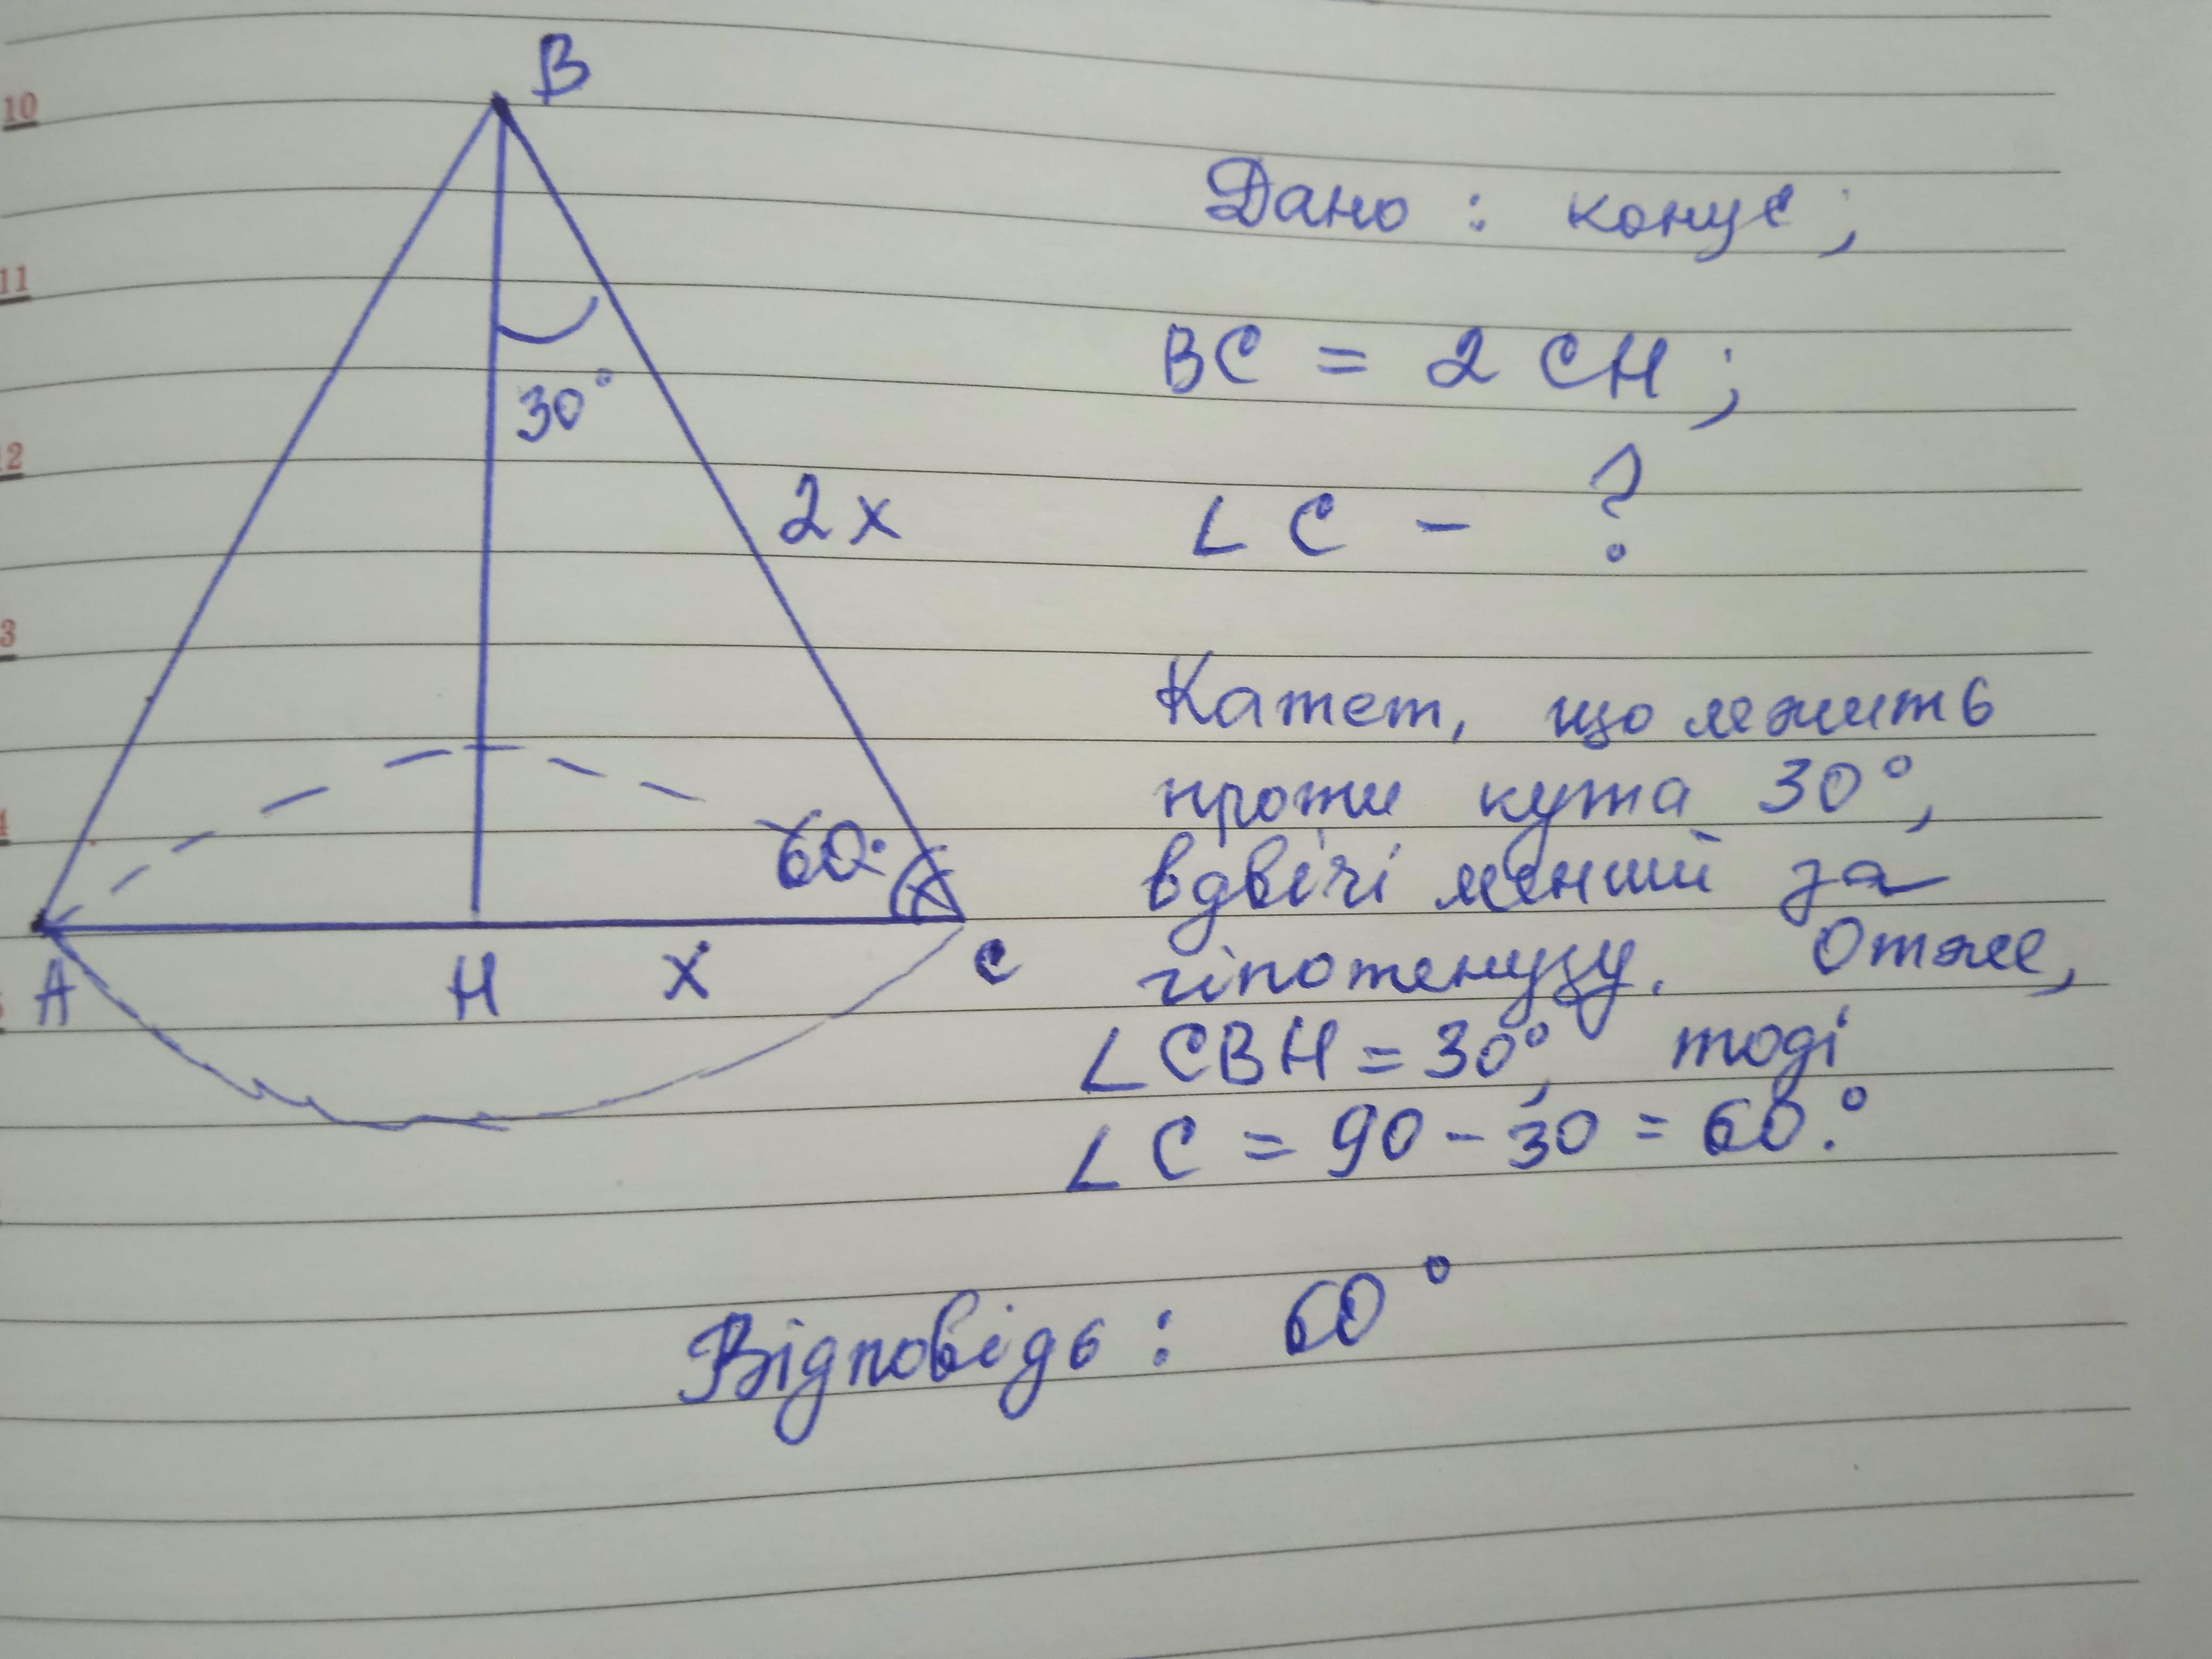 10
11
12
3
4
B
30°
2x
60°
A
H
x
C
Дано : конус ;
BC = 2 CH ;
∠ C - ?
Катет, що лежить
проти кута 30°,
вдвічі менший за
гіпотенузу. Отже,
∠CBH = 30°, тоді
∠ C = 90 - 30 = 60.°
Відповідь : 60°